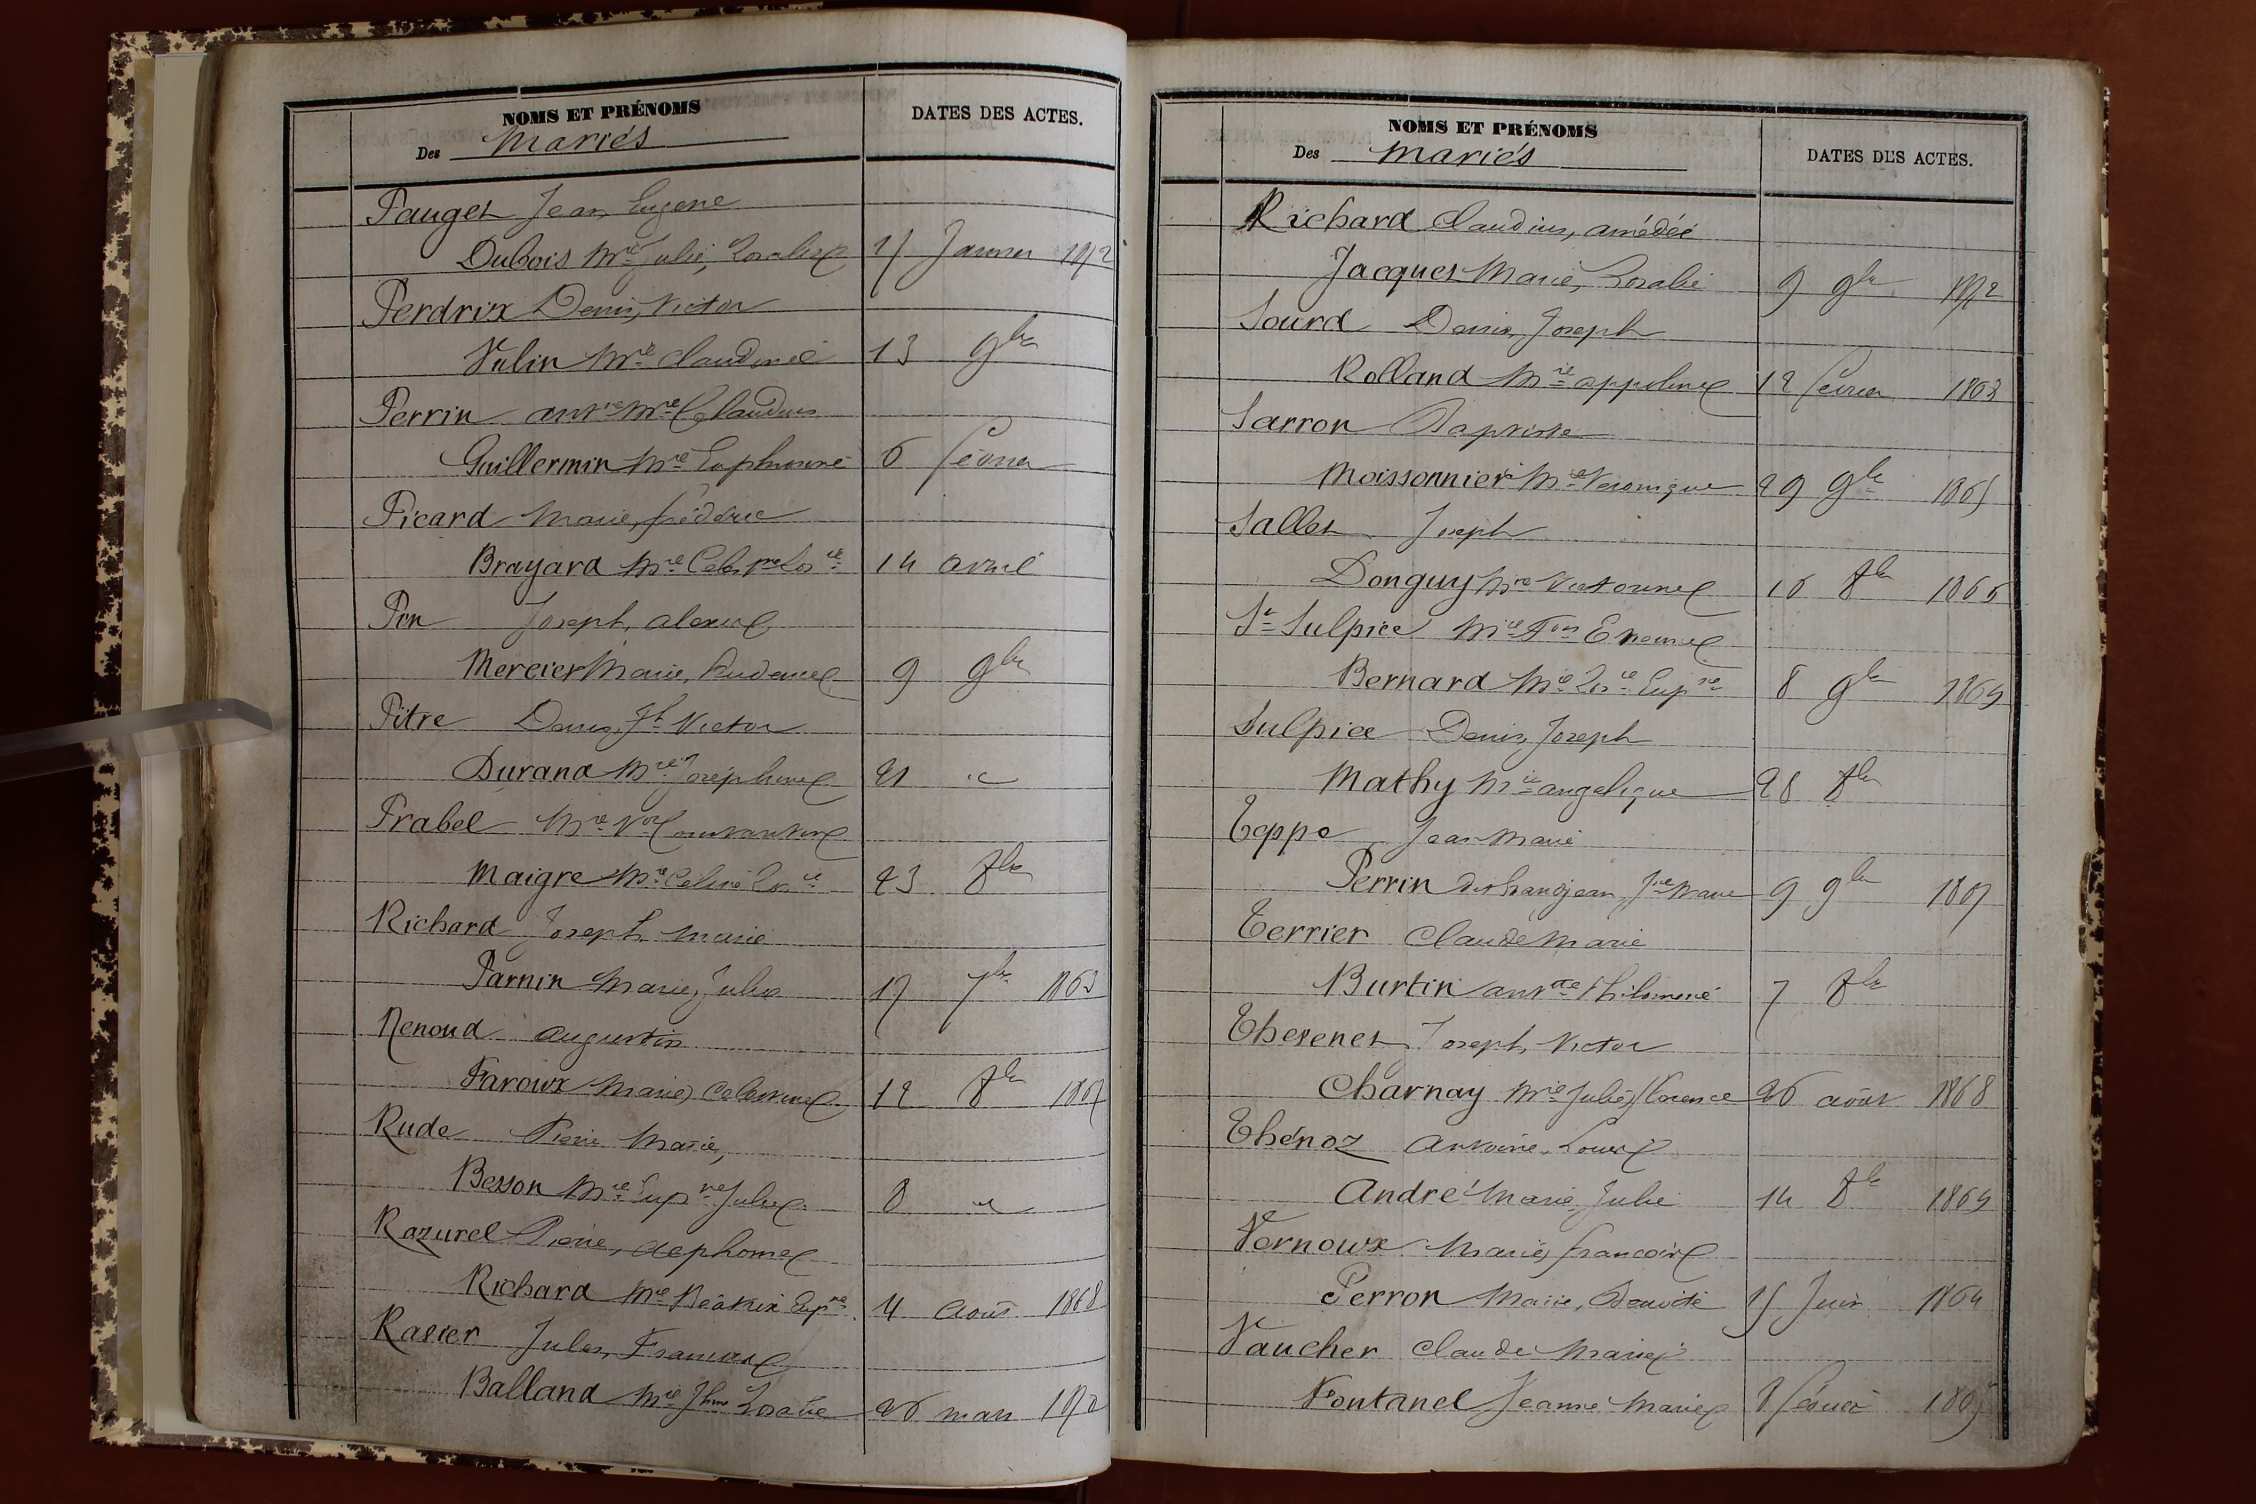 NOMS ET PRÉNOMS
Des Mariés
DATES DES ACTES.
Pauget Jean Eugene
Dubois Mie Julie, Rosalie Janvier
Perdrix Denis, Victor
Vulin Mie Claudine 13 9bre
Perrin antne Mie Claudius
Guillermin Mie Euphrosine 6 février
Picard Marie, frédéric
Brayard Mie 14 avril
Pin Joseph, alexis
Mercier Marie, Prudence 9 9bre
Pitre Denis, Jh Victor
Durand Mie Joséphine 21 "
Prabel Mie Vor Constantin
Maigre Mie Celine 23 8bre
Richard Joseph Marie
Parnin Marie, Julie 17 7bre 1863
Renoud augustin
Faroux Marie, Celestine 12 8bre 1867
Rude Pierre Marie,
Besson Mie Eupne Julie 8 "
Razurel Pierre, alphonse
Richard Mie Béatrix Eupne 4 août 1868
Rasier Jules, François
Balland Mie Jhine Rosalie 26 mars
NOMS ET PRÉNOMS
Des Mariés
DATES DES ACTES.
Richard Claudius, amédée
Jacques Marie, Rosalie 9 9bre 1872
Sourd Denis, Joseph
Rolland Mie appoline 12 février 1863
Sarron Baptiste
Moissonnier Mie Veronique 29 9bre 1865
Sallet Joseph
Donguy Mie Victorine 16 8bre 1866
St Sulpice Mie Fois
Bernard Mie Rosie Eupne 8 9bre 1869
Sulpice Denis, Joseph
Mathy Mie angelique 28 8bre
Teppe Jean Marie
Perrin dit Grandjean, Jne Marie 9 9bre 1867
Terrier Claude Marie
Burtin antte Philomène 7 8bre
Therenet Joseph, Victor
Charnay Mie Julie, florence 26 août 1868
Thénoz Antoine, Louis
André Marie, Julie 14 8bre 1869
Vernoux Marie, françois
Perron Marie, Benoite 15 Juin 1864
Vaucher Claude Marie
Fontanel Jeanne Marie 8 février